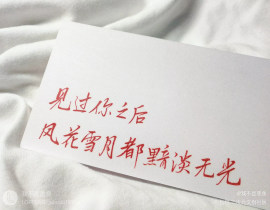 见过你之后
风花雪月都黯淡无光